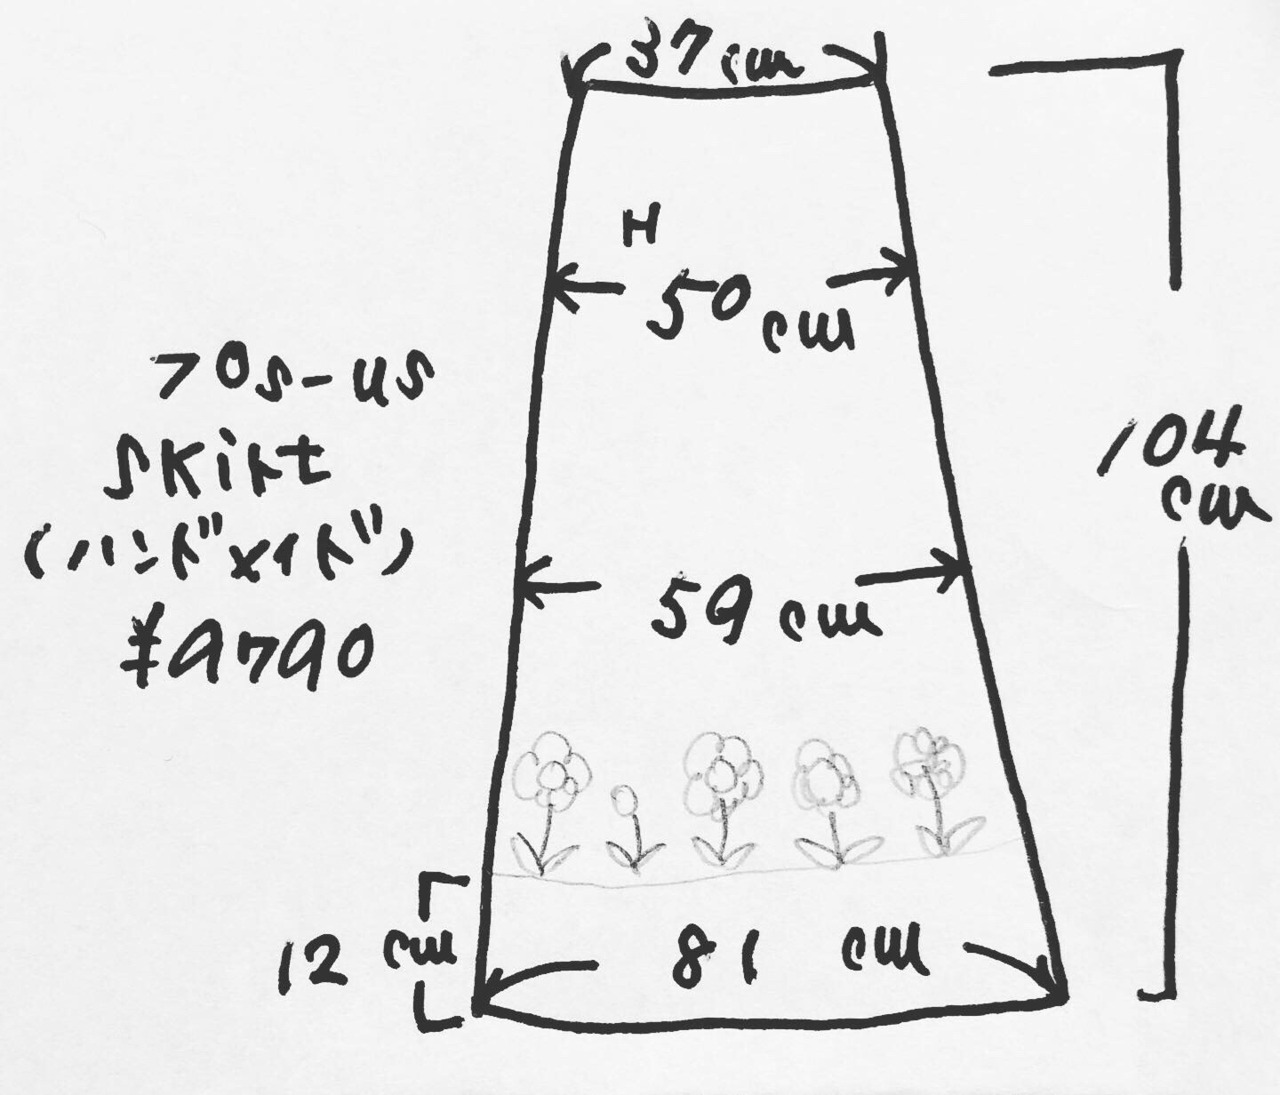 37cm
H
50cm
70s-us
skirt
(ハンドメイド)
¥9790
104
cm
59cm
12cm
81cm